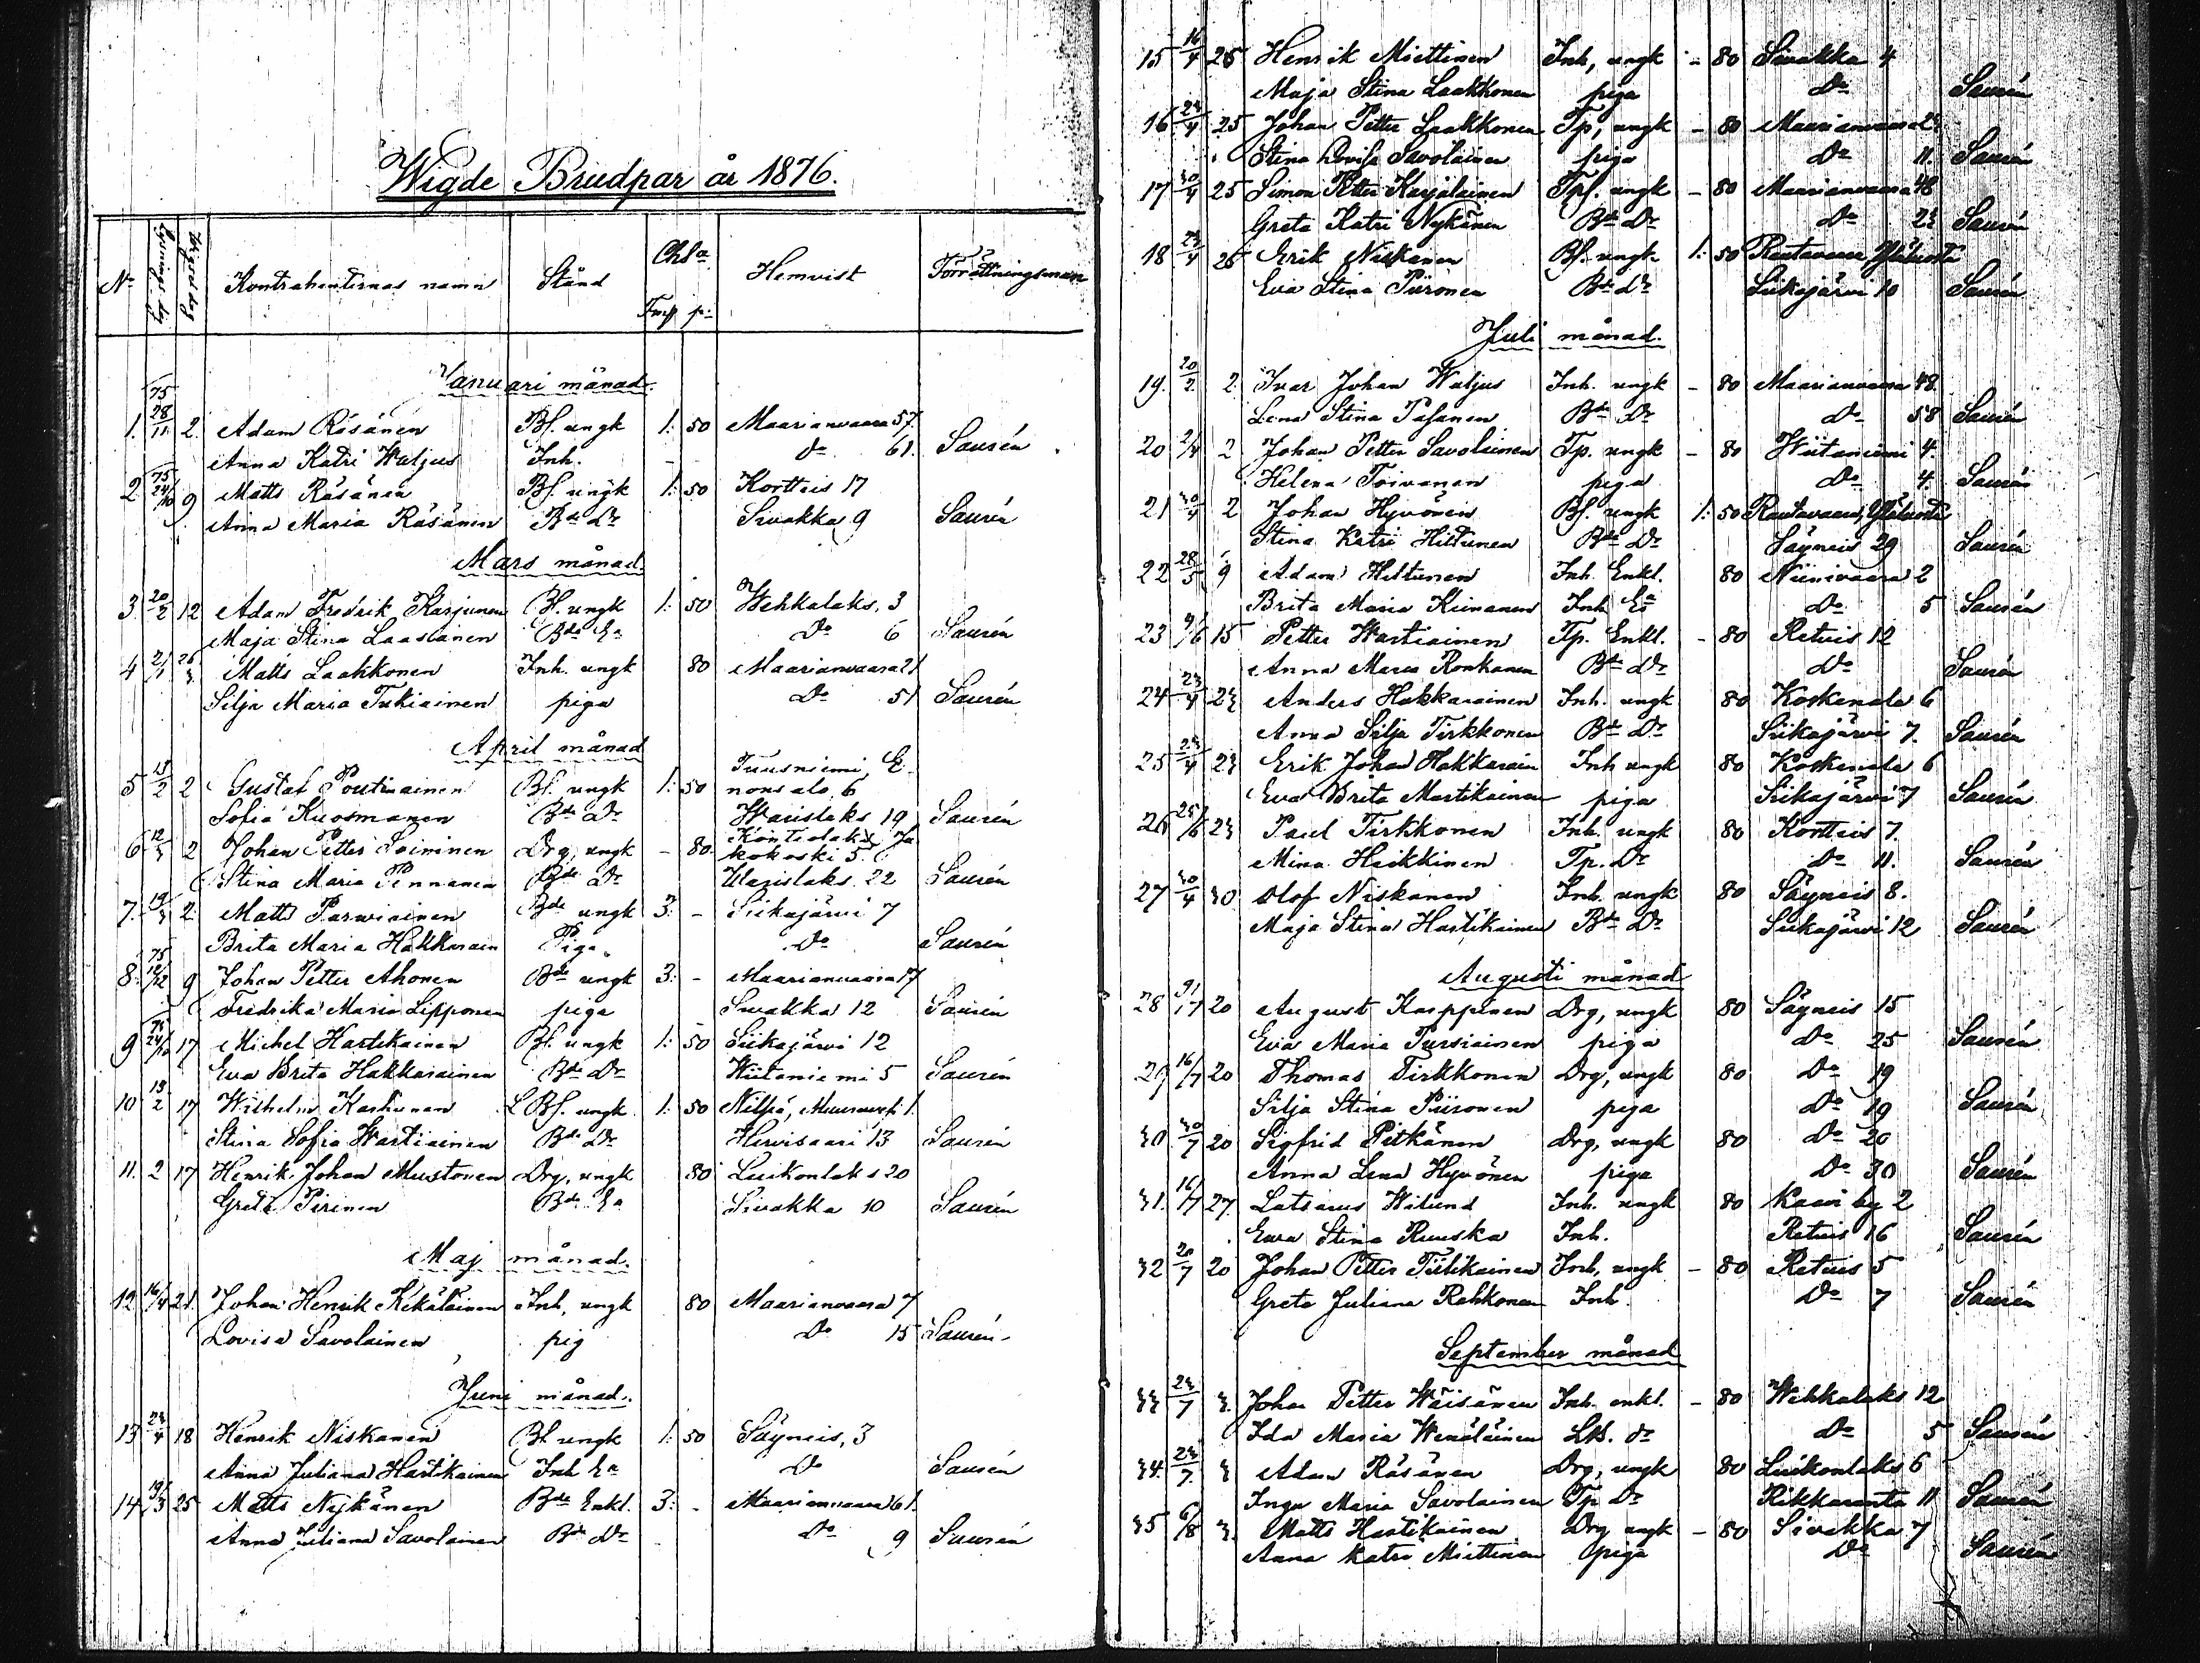 Wigde Brudpar år 1876.
No Lysnings dag Vigsel dag Kontrahenternas namn Stånd Chsa Fmk p: Hemvist Förrättningsman
Januari månad.
75
1. 28/11 2. Adam Räsänen Bf. ungk 1: 50 Maarianvaara 57.
Anna Katri Waljus Inh. do 61. Saurén
2 75 24/10 9 Matts Räsänen Bf. ungk 1: 50 Kortteis 17
Anna Maria Räsänen Bde Dr Sivakka 9 Saurén
Mars månad.
3 20/2 12 Adam Fredrik Karjunen Bf. ungk 1: 50 Wehkalaks, 3
Maja Stina Laastanen Bde Ea Do 6 Saurén
4 2/1 26/3 Matts Laakkonen Inh. ungk 80 Maarianvaara 21
Silja Maria Tukiainen piga Do 51 Saurén
April månad
5 13/2 2 Gustaf Poutiainen Bf. ungk 1: 50 Tuusniemi, E
nonsalo, 6
Sofia Kuosmanen Bde Dr Warislaks 19 Saurén
6 12/3 2 Johan Petter Soininen Drg, ungk - 80. Kontiolaks, Ja
kokoski 5.
Stina Maria Pennanen Bde Dr Warislaks 22 Saurén
7. 19/3 2. Matts Parwiainen Bde ungk 3: - Siikajärvi 7
Brita Maria Hakkarain Piga Do Saurén
8. 75 12/12 9 Johan Petter Ahonen Bde ungk 3: - Maarianvaara 17
Fredrika Maria Lipponen piga Sivakka 12 Saurén
9 75 24/10 17 Michel Hartikainen Bf. ungk 1: 50 Siikajärvi 12
Eva Brita Hakkarainen Bde Dr Wiitaniemi 5 Saurén
10 13/2 17 Wilhelm Karhunen LBf. ungk 1: 50 Nilsiä, 1.
Stina Sofia Wartiainen Bde Dr Hirvisaari 13 Saurén
11. 2 17 Henrik Johan Mustonen Drg, ungk 80 Luikonlaks 20
Greta Pirinen Bde Ea Sivakka 10 Saurén
Maj månad.
12 16/4 21. Johan Henrik Kekäläinen Inh, ungk 80 Maarianvaara 7
Lovisa Savolainen pig Do 15 Saurén
Juni månad.
13 23/4 18 Henrik Niskanen Bf. ungk 1: 50 Säyneis, 3
Anna Juliana Hartikainen Inh Ea Do Saurén
14 19/3 25 Matts Nykänen Bde Enkl. 3: - Maarianvaara 61.
Anna Juliana Savolainen Bde Dr Do 9 Saurén
15 16/4 25 Henrik Miettinen Inh, ungk - 80 Sivakka 4
Maja Stina Laakkonen piga Do Saurén
16 23/4 25 Johan Petter Laakkonen Tp, ungk - 80 Maarianvaara 23
Stina Lovisa Savolainen piga Do 11. Saurén
17 30/4 25 Simon Petter Karjalainen Tpl. ungk - 80 Maarianvaara 48
Greta Katri Nykänen Bde Dr Do 23 Saurén
18 23/4 25 Erik Niskanen Bf. ungk 1: 50 Rautavaara,
Eva Stina Piironen Bde Dr Siikajärvi 10 Saurén
Juli månad.
19. 20/2 2. Ivar Johan Waljus Inh. ungk - 80 Maarianvaara 48.
Lena Stina Pasanen Bde Dr Do 58 Saurén
20 2/4 2 Johan Petter Savolainen Tp. ungk - 80 Wiitaniemi 4.
Helena Toivanen piga Do 4. Saurén
21 30/4 2 Johan Hyvönen Bf. ungk 1: 50 Rautavaara,
Stina Katri Hiltunen Bde Dr Säyneis 29 Saurén
22 28/5 9 Adam Hiltunen Inh. Enkl. 80 Niinivaara 2
Brita Maria Kiimanen Inh Ea Do 5 Saurén
23 9/6 15 Petter Wartiainen Tp. Enkl. - 80 Retuis 12
Anna Maria Ronkanen Bde Dr Do Saurén
24 23/4 23 Anders Hakkarainen Inh. ungk 80 Koskenala 6
Anna Silja Tirkkonen Bde Dr Siikajärvi 7. Saurén
25 23/4 23 Erik Johan Hakkarain Inh ungk 80 Koskenala 6
Eva Brita Martikainen piga Siikajärvi 7 Saurén
26 25/6 23 Paul Tirkkonen Inh. ungk 80 Kortteis 7.
Mina Heikkinen Tp. Dr do 11. Saurén
27 30/4 30 Olof Niskanen Inh. ungk 80 Säyneis 8.
Maja Stina Hartikainen Bde Dr Siikajärvi 12 Saurén
Augusti månad
28 9/7 20 August Karppinen Drg, ungk 80 Säyneis 15
Eva Maria Tursiainen piga Do 25 Saurén
29 16/7 20 Thomas Tirkkonen Drg, ungk 80 Do 19
Silja Stina Piironen piga Do 19 Saurén
30 30/7 20 Sigfrid Pitkänen Drg, ungk 80 Do 20
Anna Lena Hyvönen piga Do 30 Saurén
31. 16/7 27. Latsarus Wilund Inh. ungk 80 Kaavi by 2
Eva Stina Ruuska Inh. Retuis 16 Saurén
32 20/7 20 Johan Petter Tiilikainen Inh, ungk - 80 Retuis 5
Greta Juliana Rahkonen Inh. Do 7 Saurén
September månad
33 23/7 3. Johan Petter Wäisänen Inh. enkl. - 80 Wehkalaks 12
Ida Maria Wenäläinen LB. dr Do 5 Saurén
34. 23/7. 3 Adam Räsänen Drg, ungk 80 Luikonlaks 6
Inga Maria Savolainen Tp Dr Rikkaranta 11 Saurén
35 6/8 3. Matts Hartikainen Drg ungk - 80 Sivakka 7
Anna Katri Miettinen piga Do Saurén